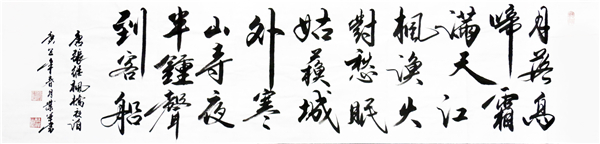 月落烏
啼霜
滿天江
楓漁火
對愁眠
姑蘇城
外寒
山寺夜
半鐘聲
到客船
唐張继楓橋夜泊
年春月書